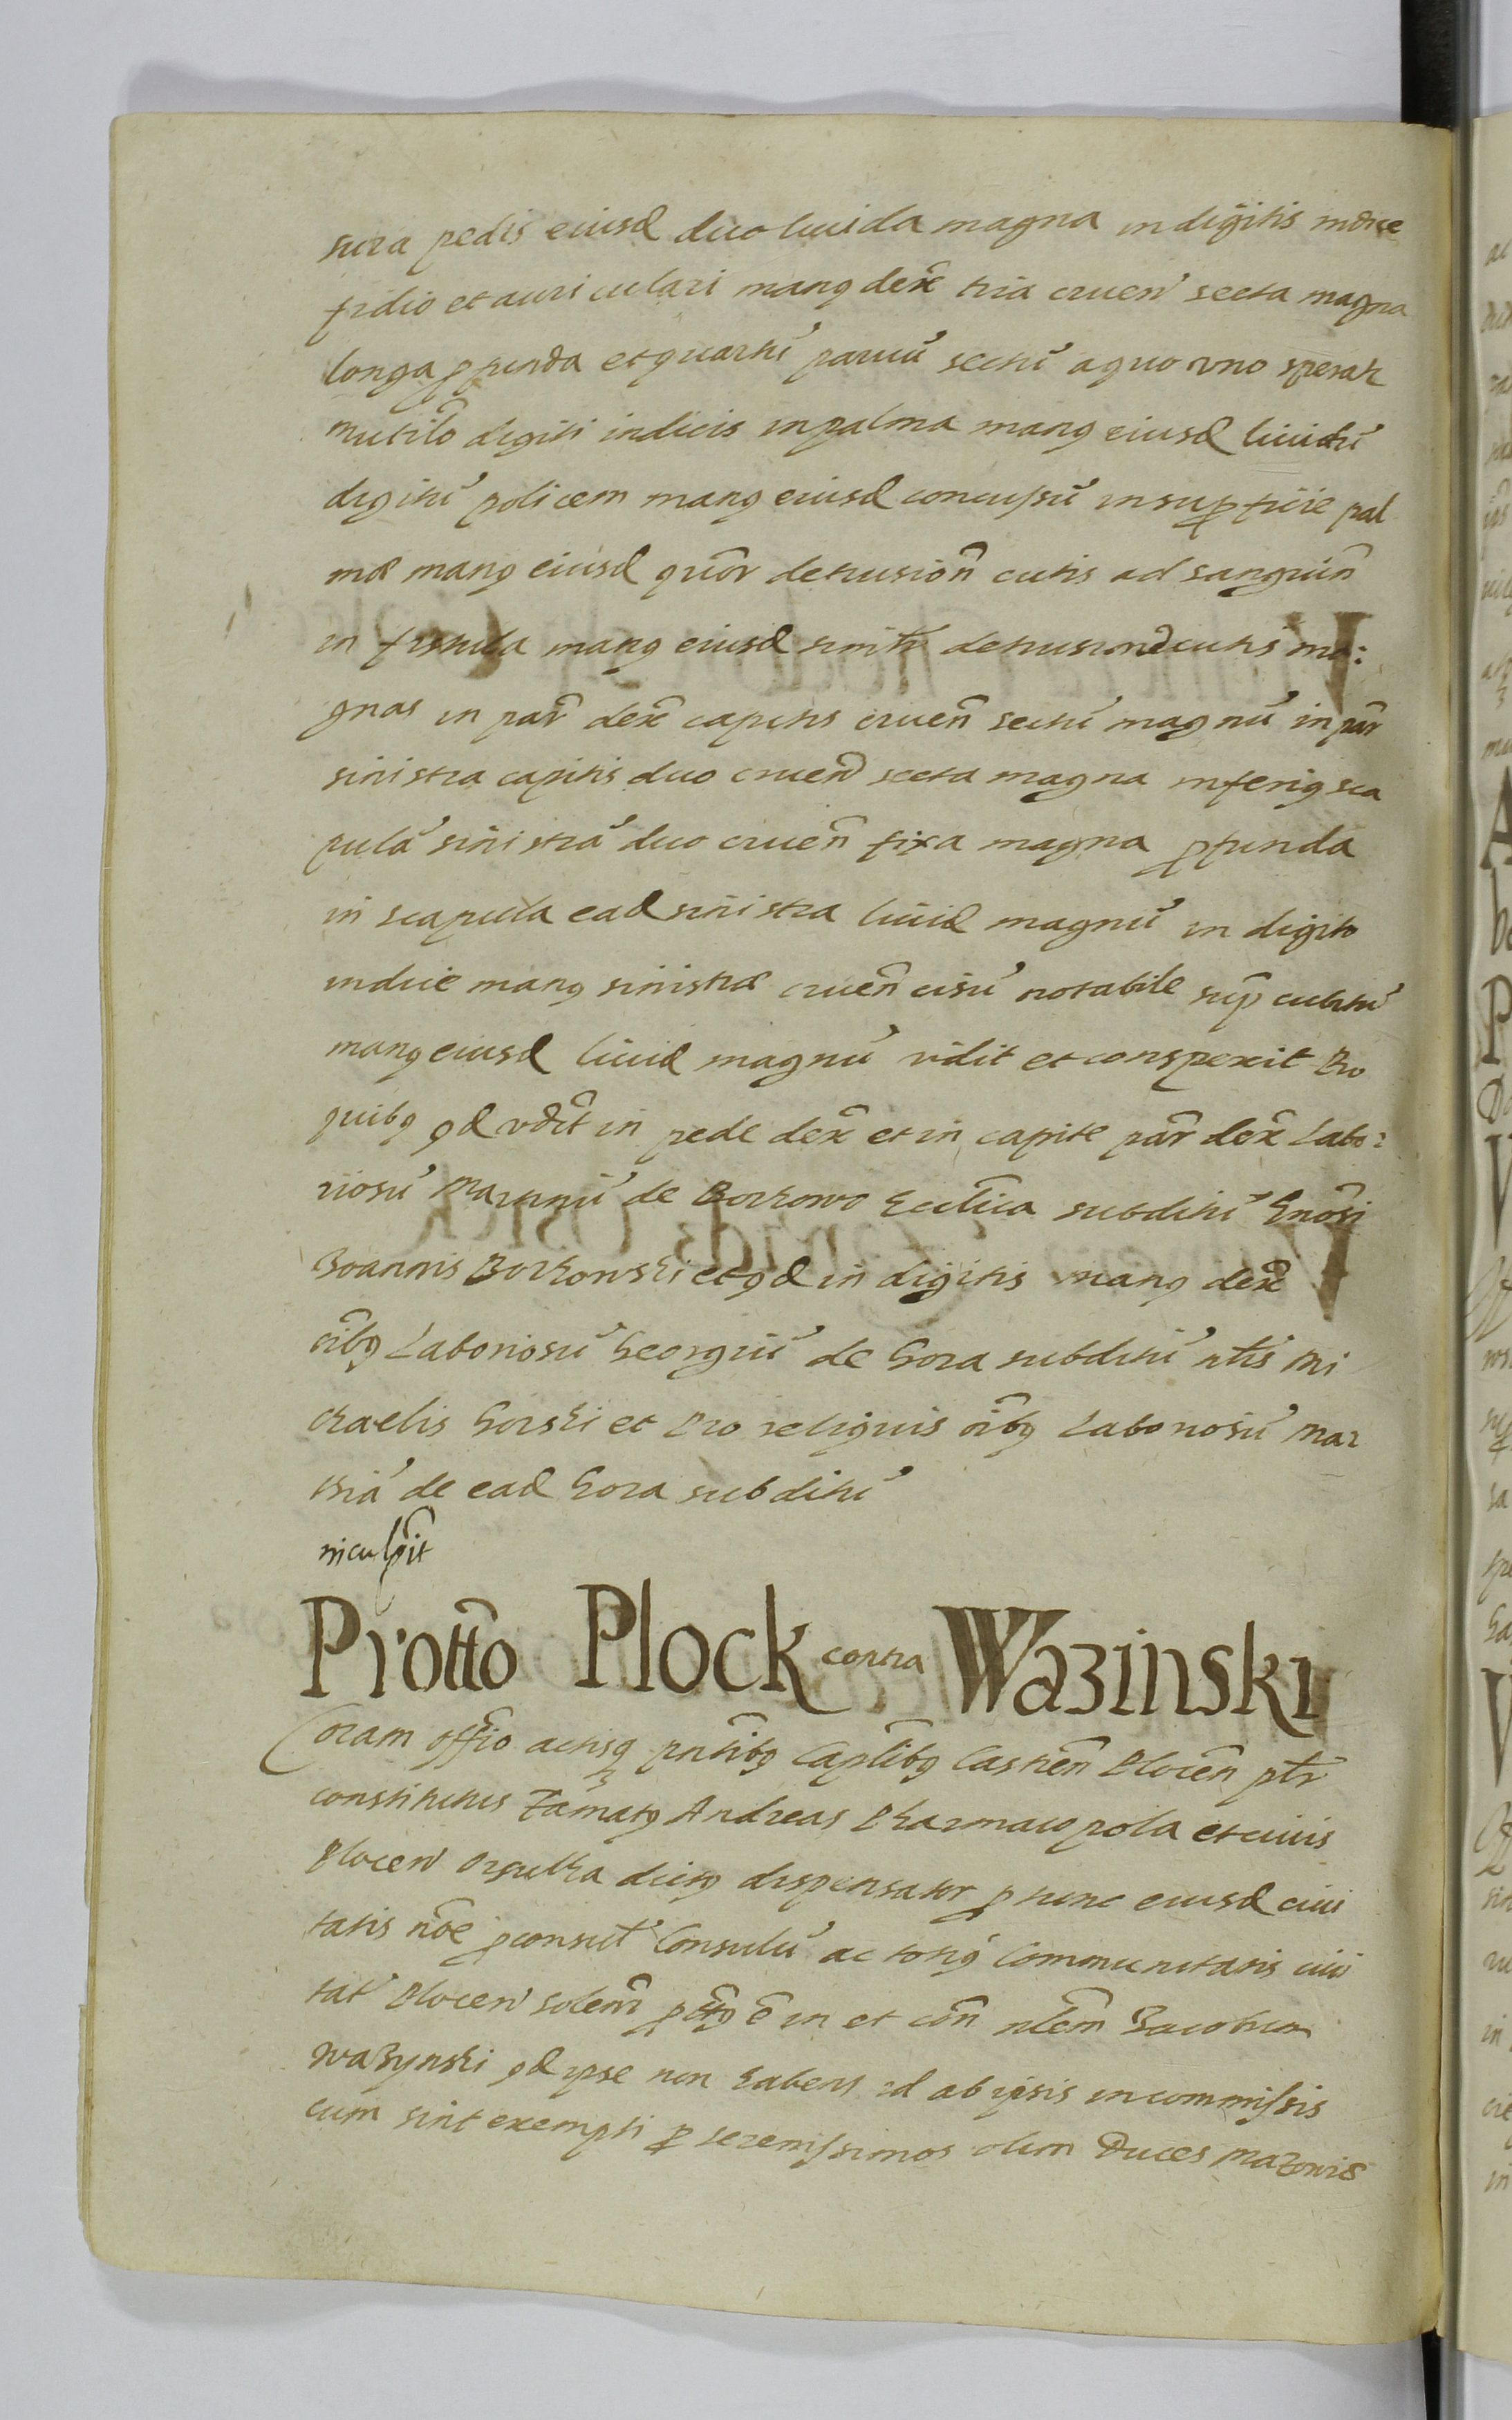 sura pedis eiusd duo liuida magna in digitis indice
fidio et auriculari manꝯ dex̃ tria cruen̄ secta magna
longa ꝓfunda et quartū paruū sectū a quo vno sperat
mutilō digiti indicis in palma manꝯ eiusd liuidū
digitū policem manꝯ eiusd concussū in suꝑficie pal
mæ manꝯ eiusd quōr detrusion̄ cutis ad sanguin̄
in fistula manꝯ eiusd detrusiones cutis ma:
gnas in par̄ dex̃ capitis cruen̄ sectū magnū in par̄
sinistra capitis duo cruen̄ secta magna inferiꝯ sca
pulā sinistrā duo cruen̄ fixa magna ꝓfunda
in scapula ead sinistra liuid magnū in digito
indice manꝯ sinistræ cruen̄ cisū notabile sup̄ cubitū
manꝯ eiusd liuid magnū vidit et conspexit Pro
quibꝯ qd vdit in pede dex̃ et in capite par̄ dex̃ Labo:
riosū Martinū de Borkowo Ecclīca subditū Gnōsi
Joannis Borkowski et qd in digitis manꝯ dex̃
oībꝯ Laboriosū Georgiū de Gora subditū nlis Mi
chaelis Gorski et Pro reliquis oībꝯ Laboriosū Mat
thiā de ead Gora subditū
inculpīt
Protto Plock contra Wazinski
Coram offīo actisqꝫ pntībꝯ Caplībꝯ Castren̄ Plocen̄ pl̄r
constitutus Famatꝯ Andreas Pharmacopola et ciuis
Plocen̄ dictꝯ dispensator ꝓ tunc eiusd ciui
tatis nōe ꝓconsul̄ Consulū ac totiꝯ Communitatis ciui
tat̄ Plocen̄ solen̄r ꝓttꝯ ē in et cōn nlēm Jacobum
Wazynski qd ipse non habens id ab ipsis in commissis
cum sint exempti ꝑ serenissimos olim Duces Mazouiæ